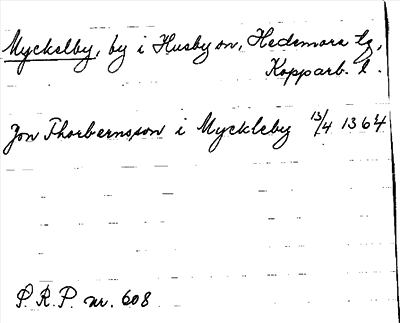 Myckelby, by i Husby sn, Hedemora tg,
Kopparb. l.
Jon Thorbernsson i Myckleby 13/4 1364
S. R. P. nr. 608